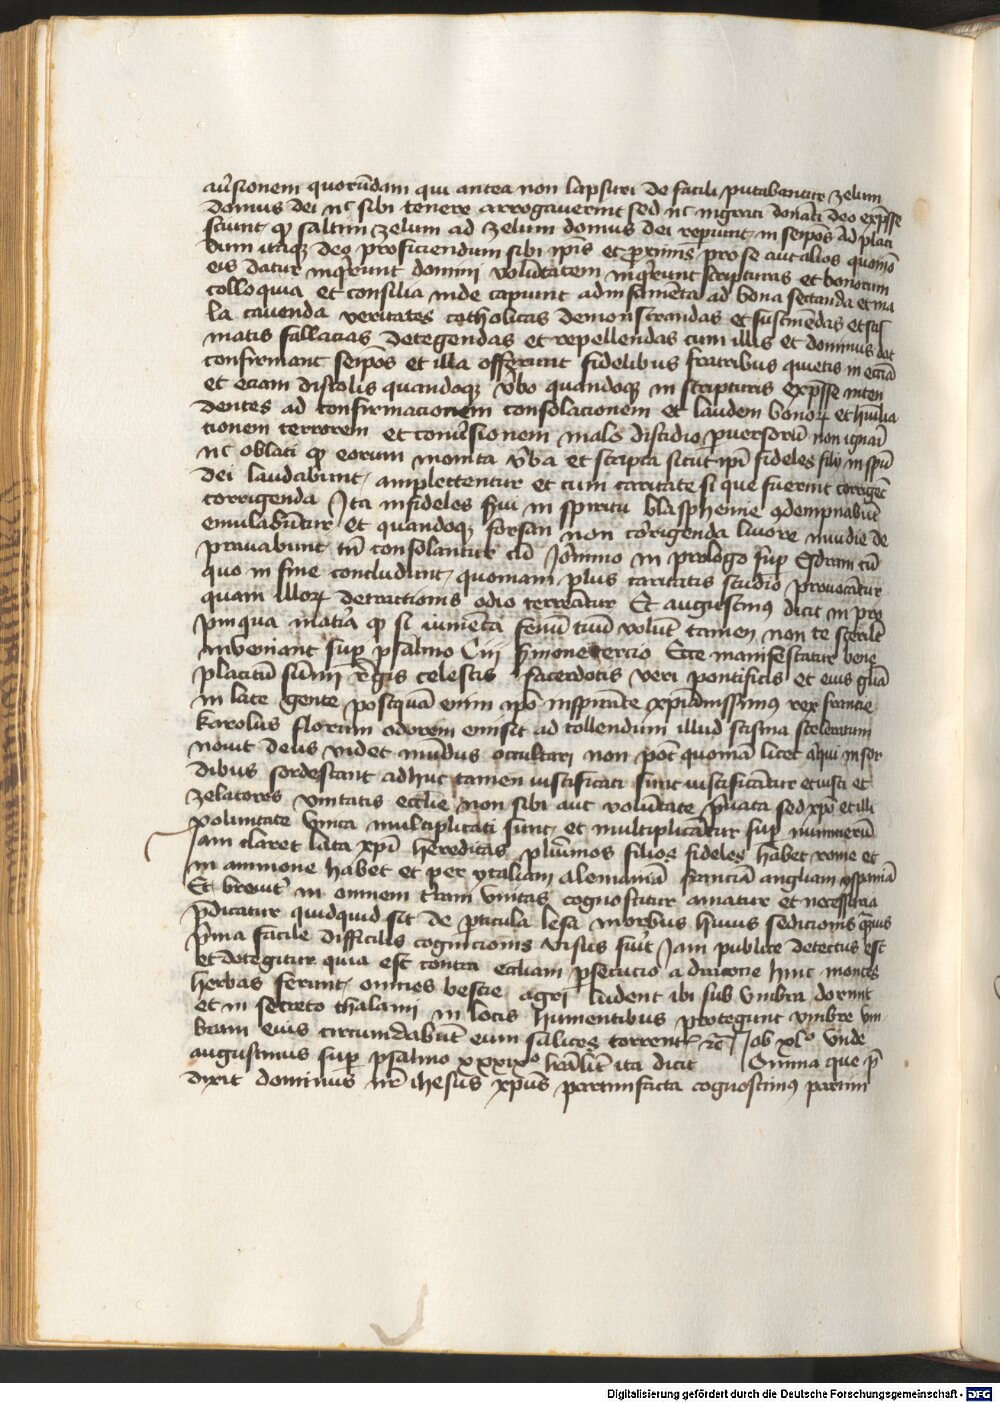 auᷣsionem quorūdam qui antea non lapsuri de facili putabantur zelum
domus dei nᶜ sibi tenere arrogaverint sed nᶜ ingrati donati deo expᷣsse
sciunt qͥ saltim zelum ad zelum domus dei repunt in seipōs Ad placi
dum itaqꝫ deo proficiendum sibi ipīs et proximīs pro se aut alios quomō
eis datur inqͥrunt domini volūtatem inqͥrunt scripturas et bonorum
colloquia et consilia inde capiunt adinsamēta ad bona sectanda et ma
la cavenda veritates catholicas demonstrandas et suscinēdas et scis
matis fallacias detegendas et repellendas cum illis et dominus dat
confirmant seipos et illa offerunt fidelibus fratribus quietis in eccīa
et eciam discolis quandoqꝫ vᷣbo quandoqꝫ in scripturis expᷣsse inten
dentes ad confirmacionem consolacionem et laudem bonoꝝ et humilia
tionem terrorem et conuᷣsionem male discidio pᷣuersorū non ignari
nᶜ oblati qͥ eorum monita vᷣba et scripta sicut ipī fideles filii in spū
dei laudabunt amplectentur et cum caritate si que fuerint corrigēt
corrigenda Ita infideles sui in spiritu blasphemie ɔdempnabūt
emulabūtur et quandoqꝫ forsan non corrigenda livore invidie de
pravabunt tn̄ consolantur cū Jeronimo in prologo sup Esdram cū
quo in fine concludunt quoniam plus caritatis studio provocātur
quam illoꝝ detractionis odio terreātur Et augustinꝰ dicit in pro
pinqua matᷣia qͥ si iumēta fenū tuū volūt tamen non te sterilē
inveniant sup psalmo Ciii sᷣmone tercio Ecce manifestatur bene
placitū sūmi rᷣgis celestis sacerdotis veri pontificis et eius glīa
in lace gente postquā enim ipō inspirāte xpīanissimꝰ rex francie
karolus florum odorem emisit ad tollendum illud scisma sceleratum
novit deus videt mūdus occultari non pōt quomā licet aliqui in sor
dibus sordescant adhuc tamen iustificati sunt iustificātur et iusti et
zelatores vnitatis ecclīe non sibi aut volūtate pᷣuata sed xpō et illi
voluntate vnica multiplicati sunt et multiplicātur sup numerū
Jam claret lata xpī hereditas plurimos filios fideles habet rome et
in aminone habet et per ytaliam alemaniā franciā angliam ispaniā
Et breuitᷣ in omnem terrā vnitas cognoscitur amatur et necessaria
pᷣdicatur quidquid sit de pᷣticula lesa morbus huius sedicionis quāuis
pᷣma facile difficilis cognicionis visus fuit Jam publice detectus est
et detegitur quia est contra eccliam pᷣsecucio a dracone huic montes
herbas ferunt omnes bestie agri ludent ibi sub vmbra dormit
et in secreto thalami in locis humentibus protegunt vmbre vm
bram eius circumdabūt eum salices torrentᷣ ⁊c̄ Job xlͦ vnde
augustinus sup psalmo xxxixͦ habᷣlīt ita dicit Omnia que pᷣ
dixit dominus nrᷣ ihesus xpūs partim facta cognoscimꝰ partim
Digitalisierung gefördert durch die Deutsche Forschungsgemeinschaft - DFG